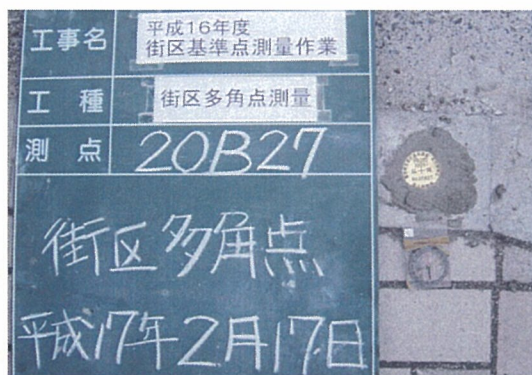 工事名
平成16年度
街区基準点測量作業
工種
街区多角点測量
測点
20B27
街区多角点
平成17年2月17日